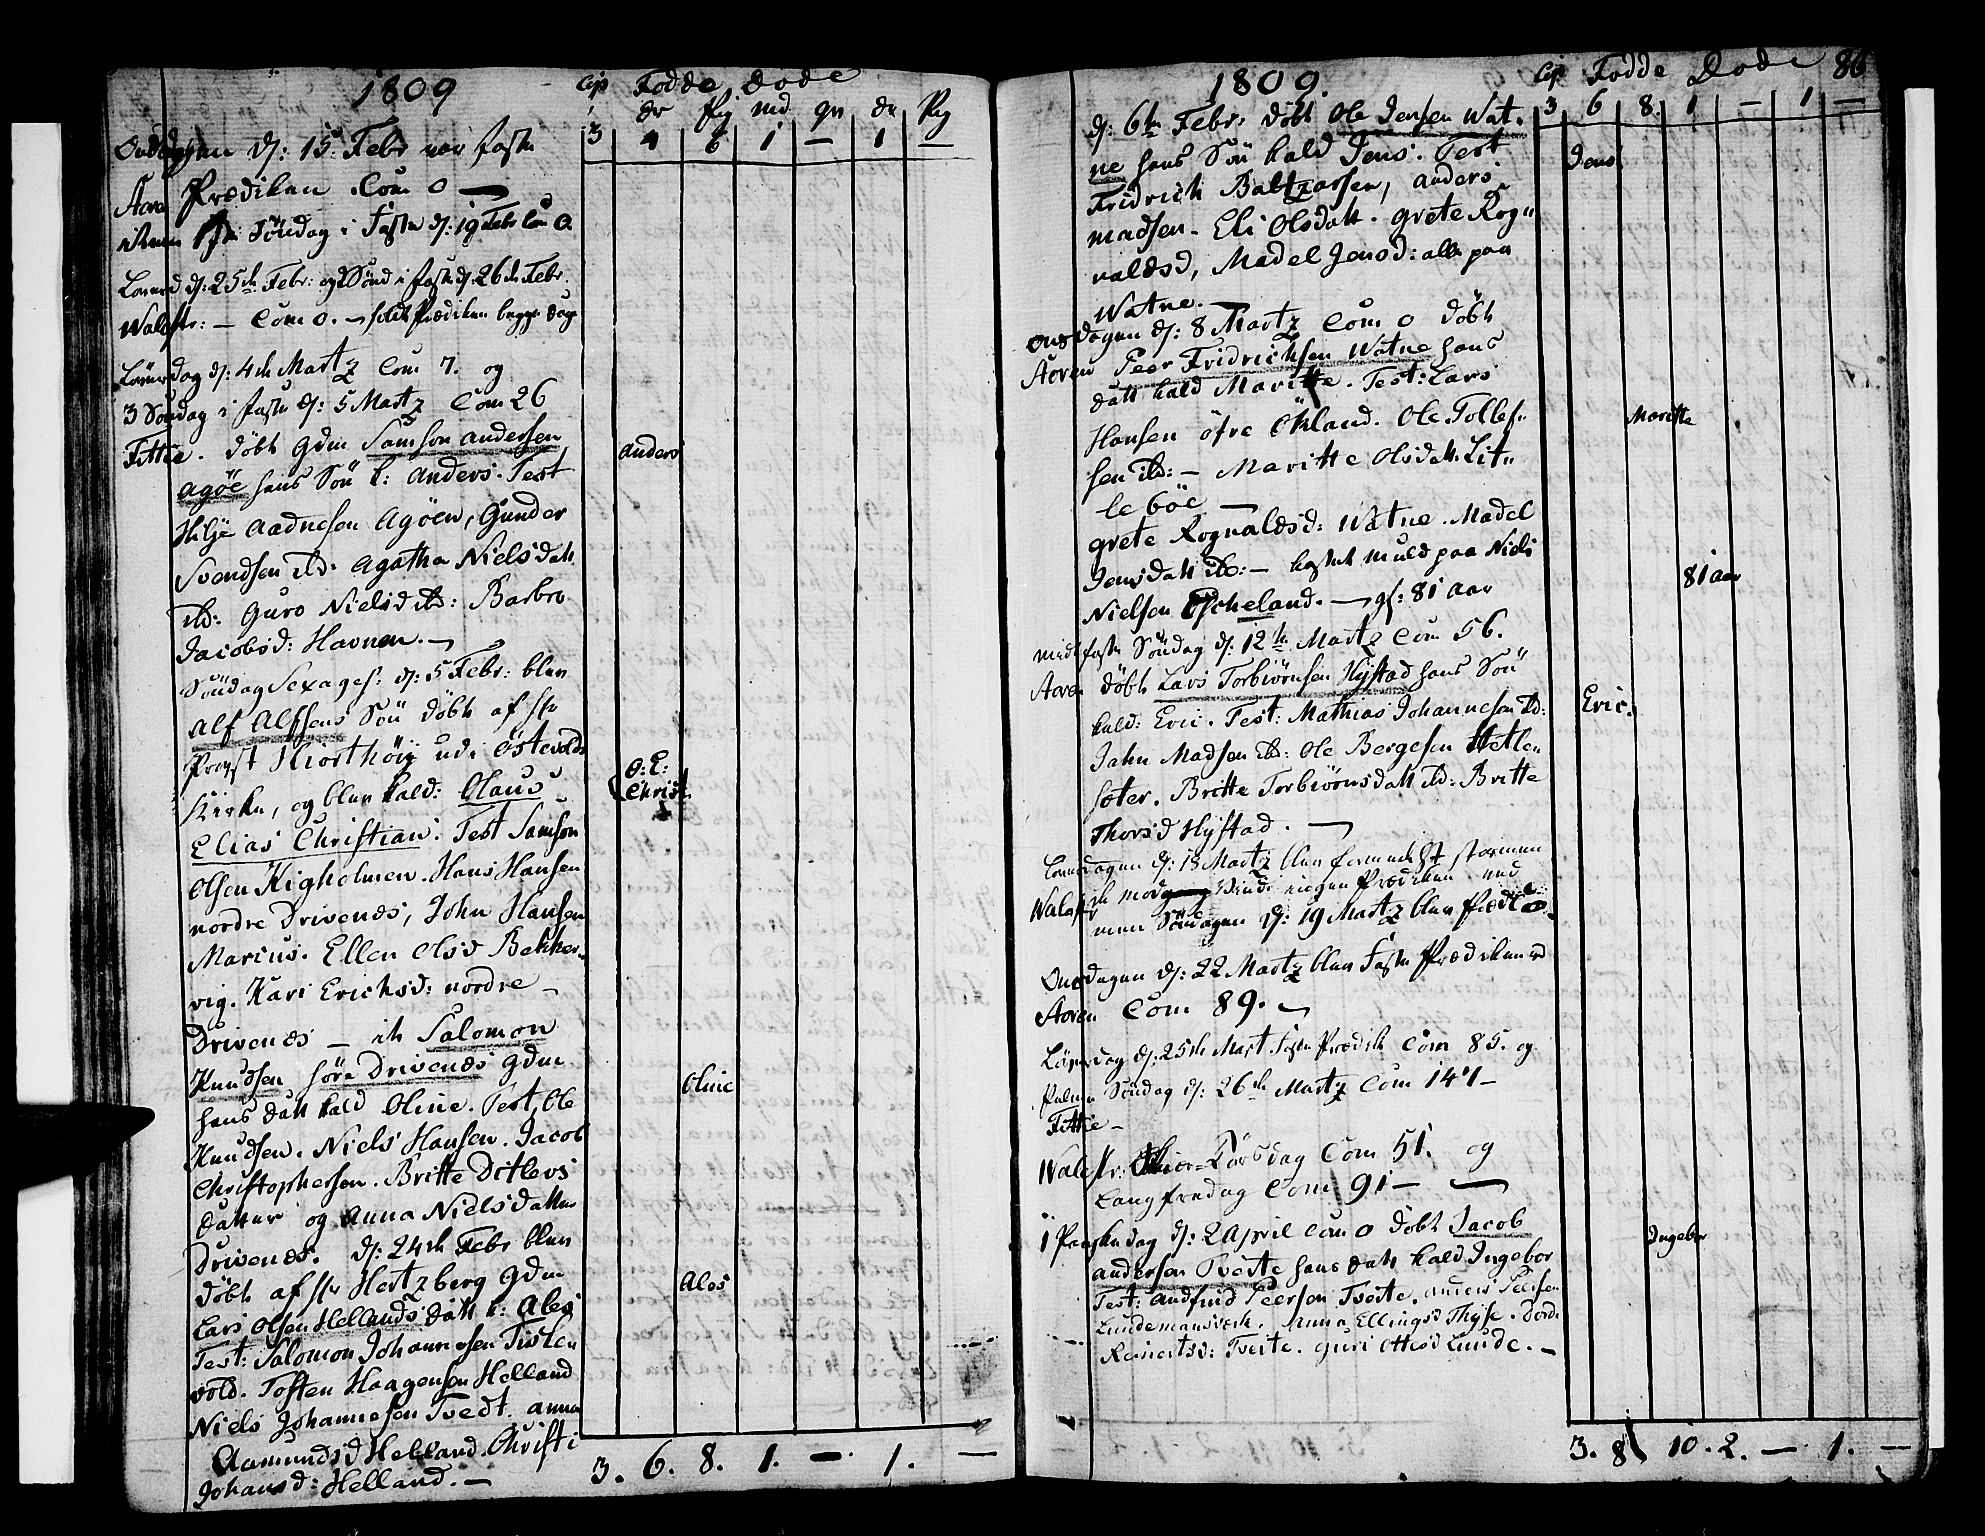 1809
Cop Fødde døde
dr Pig md qv dr Pig
3 4 6 1 — 1 —
Onsdagen d: 15 Febr var faste
Aaren Prædiken . Com 0 —
Søndag i Faste d: 19 Febr Com 0
Løverd d: 25de Febr: og 2 Sönd i faste d: 26de Febr.
Walestr: — Com 0. — holdt Prædiken begge dage
Løverdag d: 4de Martz Com 7. og
3 Söndag i faste d: 5 Martz Com 26
Fittie. döbt gdm Samson andersen
Agöe hans Sön k: Anders. Test
Hilje Aadnesen Agöen, Gunder
Svendsen ibd. Agatha Nielsdatt
ibd: Guro Nielsd ibd: Barbro
Jacobsd: Havnen. —
Söndag Sexages: d: 5 Febr: blev
Alf Alfsens Sön döbt af Hr
Provst Hiorthöij udi Östevolds
Kirke, og blev kald: Olaus
Elias Christian. Test Samson
Olsen Kigholmen. Hans Hansen
nordre Drivenes, John Hansen
Marcius. Ellen Olsd Bekker-
vig. Kari Erichsd: nordre —
Drivenes — it Salomon
Knudsen söre Drivenes gdm
hans datt kald Oline. Test Ole
Knudsen. Niels Hansen. Jacob
Christophersen. Britte Ditlevs
datter og Anna Nielsdatter
Drivenes. d: 24de Febr blev
döbt af Hr Hertzberg gdm
Lars Olsen Hellands datt k: Ales
Test: Salomon Johannesen Tislen
vold. Tosten Haagensen Helland
Niels Johannesen Tvedt. anna
Aamundsd Helland. Christi
Johansd: Helland. —
Anders
O: E:
Christ.
Oline
Ales
3. 6. 8. 1. — . 1. —
1809.
Cop Fødde Døde 86
3 6 8 1 — 1 —
d: 6te Febr: döbt Ole Jensen Wat-
ne hans Sön kald Jens. Test
Fridrich Baltzersen, anders
madsen. Eli Olsdatt. grete Rog-
valdsd, Madel Jensd: alle paa
Watne.
Onsdagen d: 8 Martz Com 0 döbt
Aaren Peer Fridrichsen Watne hans
datt kald Maritte. Test: Lars
Hansen öfre Ökland. Ole Tollef-
sen ibd: — Maritte Olsdatt Lit-
le böe —
grete Rognaldsd: Watne. Madel
Jensdatt ibd: — kastet muld paa Niels
Nielsen Escheland. — gl: 81 aar
midt faste Söndag d: 12te Martz Com 56.
Aaren döbt Lars Torbiörnsen Hystad hans Sön
kald: Eric. Test: Mathias Johannesen ibd:
Jahn Madsen ibd: Ole Bergesen Hetle
sæter. Britte Torbiörnsdatt ibd: Britte
Thorsd Hystad. —
Löverdagen d: 18 Martz blev formedelst stormen
Walestr
men Söndagen d: 19 Martz blev
Onsdagen d: 22 Martz blev Faste Prædiken
Aaren Com 89. —
Löverdag d: 25de Mart Faste Prædik Com 85. og
Palme Söndag d: 26de Martz Com 147 —
Fittie —
Walestr: Skier-Torsdag Com 51. og
Langfredag Com 91 — —
1 Paaskedag d: 2 April Com 0 döbt Jacob
andersen Tveite hans datt kald Ingebor
Test: andfind Peersen Tveite. anders Peersen
Lundemansverk. Anna Ellingsd Thyse. Dorde
Reinertsd: Tveite. guri Ottesd Lunde. —
Jens
Maritte
81 aar
Eric.
Ingebor
3. 8 10. 2. — . 1. —